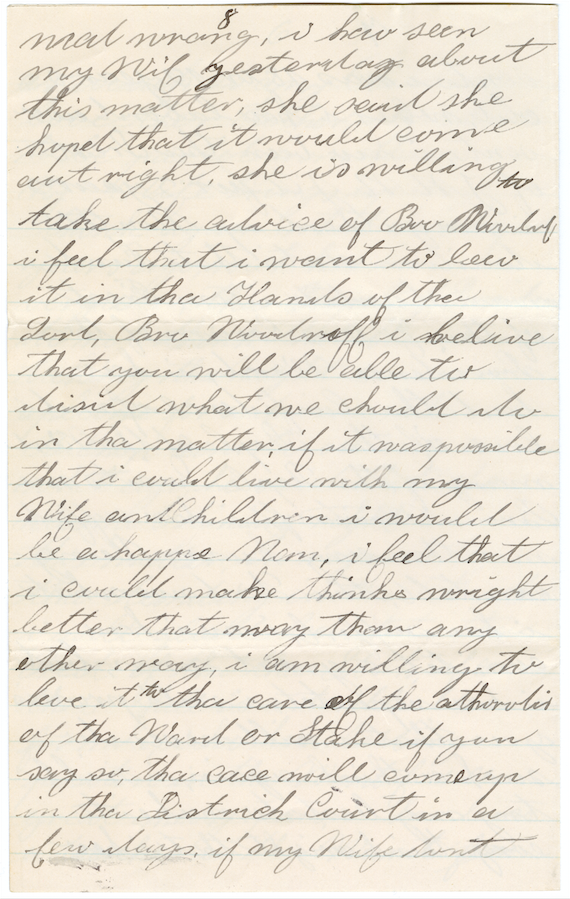 8
mad wrang, i haw seen
my Wif yesterday about
this matter, she said she
hopet that it would come
aut right, she is willing to
take the advice of Bro Woodruf
i feel that i want to leev
it in tha Hands of the
Lord, Bro Woodruff i belive
that you will be able to
disid what we chould do
in tha matter, if it was possible
that i could live with my
Wife and Children i would
be a happe Man, i feel that
i could make thinks wright
better that way than any
other way, i am willing to
leve it to tha care of the athorotis
of tha Ward or Stake if you
say so, tha cace will come up
in tha Districk Court in a
few days, if my Wife dont